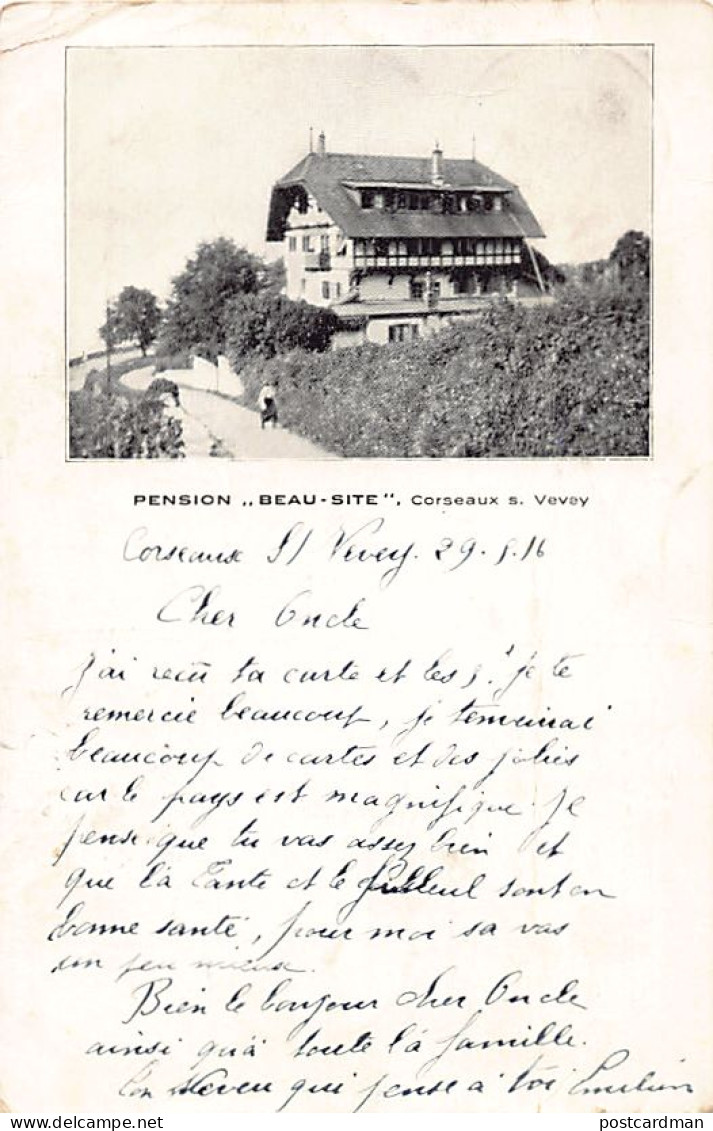 PENSION „BEAU-SITE", Corseaux s. Vevey
Corseaux S/ Vevey. 29.5.16
Cher Oncle
J'ai reçu ta carte et les je te
remercie beaucoup, je
beaucoup de cartes et des jolies
car le pays est magnifique Je
pense que tu vas assez bien et
que la Tante et le filleul sont en
bonne santé, pour moi sa vas
un peu mieux.
Bien le bonjour cher Oncle
ainsi qu'à toute la famille.
Ton Neveu qui pense à toi Emilien
Delcampe.net
postcardman